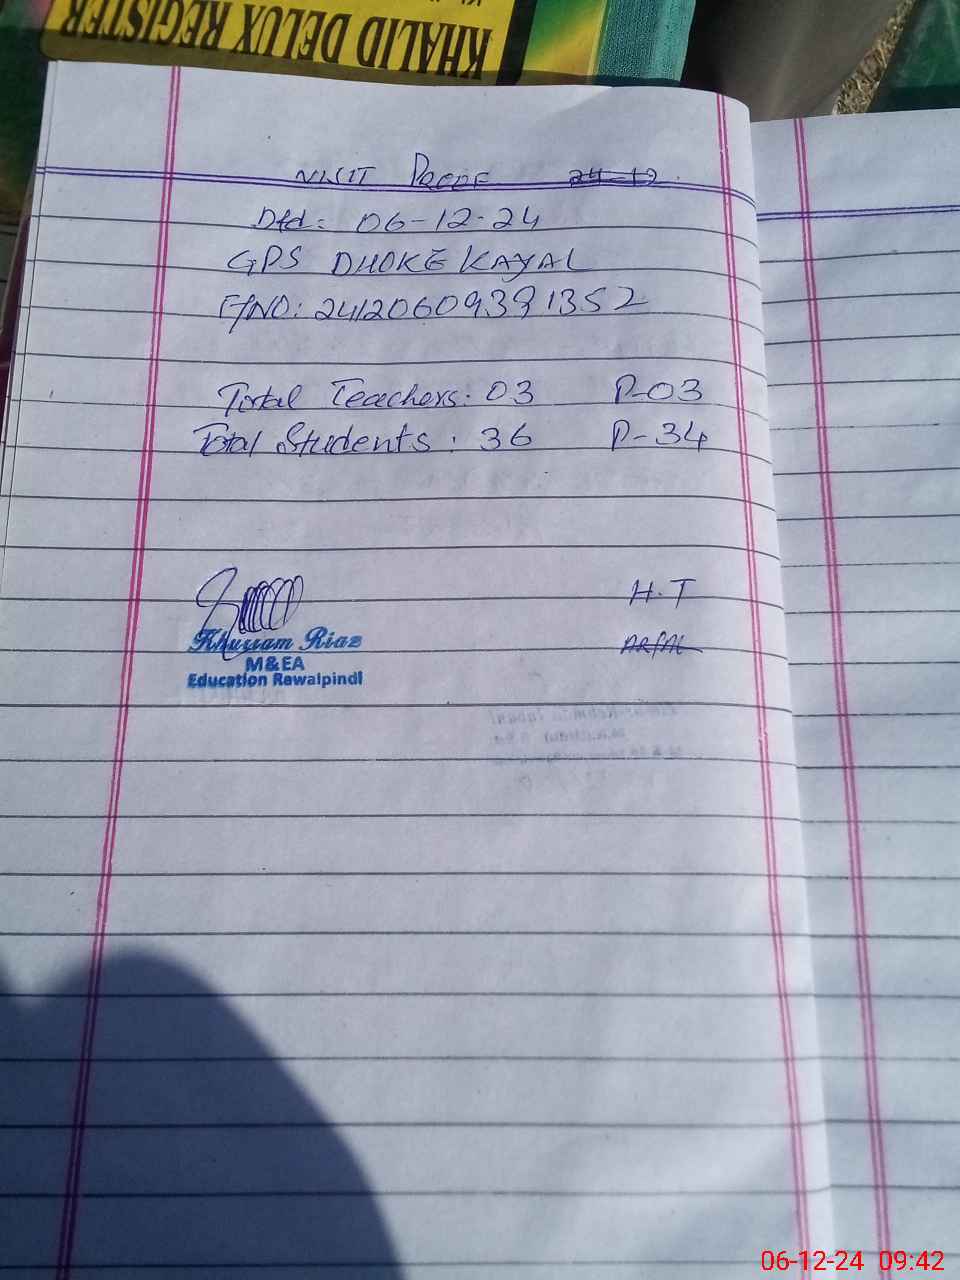 KHALID DELUX REGISTER
VISIT PROOF 24-12
Dtd: 06-12-24
GPS DHOKE KAYAL
F/NO: 24120609391352
Total Teachers: 03 P-03
Total Students: 36 P-34
H.T
Khurram Riaz
M&EA
Education Rawalpindi
06-12-24 09:42